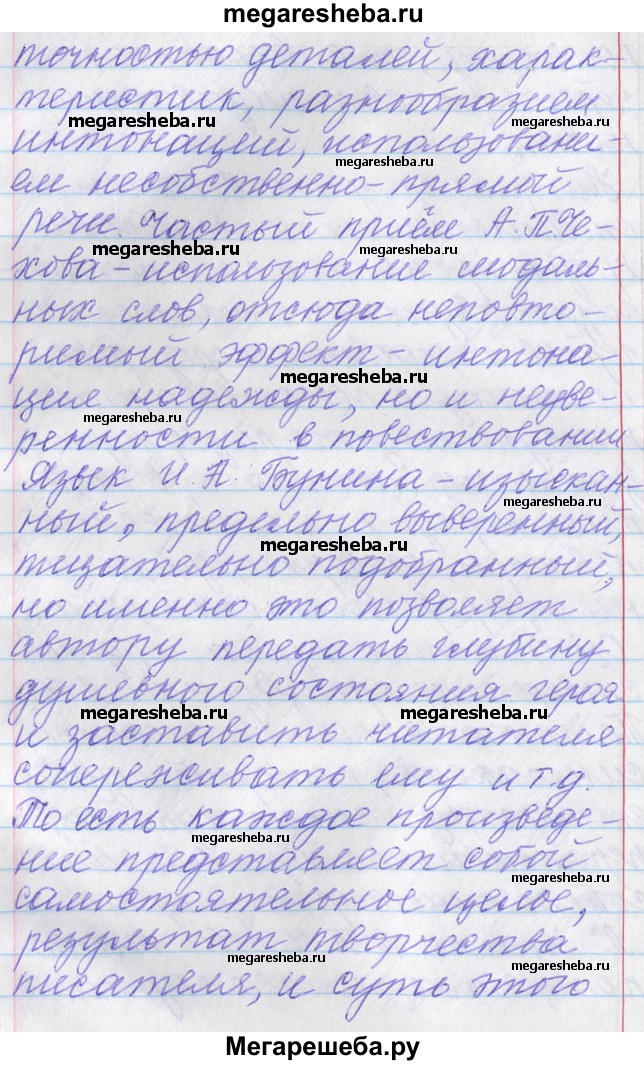 megaresheba.ru
точностью деталей, харак-
теристик, разнообразием
megaresheba.ru
megaresheba.ru
интонаций, использовани-
megaresheba.ru
ем несобственно-прямой
речи. Частый приём А.П.Че-
megaresheba.ru
megaresheba.ru
хова - использование модаль-
ных слов, отсюда неповто-
римый эффект - интона-
megaresheba.ru
ция надежды, но и неуве-
megaresheba.ru
ренности в повествовании
Язык И.А. Бунина - изыскан-
megaresheba.ru
ный, предельно выверенный,
megaresheba.ru
тщательно подобранный,
но именно это позволяет
автору передать глубину
душевного состояния героя
megaresheba.ru
megaresheba.ru
и заставить читателя
сопереживать ему и т.д.
То есть каждое произведе-
megaresheba.ru
ние представляет собой
megaresheba.ru
самостоятельное целое,
результат творчества
megaresheba.ru
megaresheba.ru
писателя, и суть этого
Мегарешеба.ру